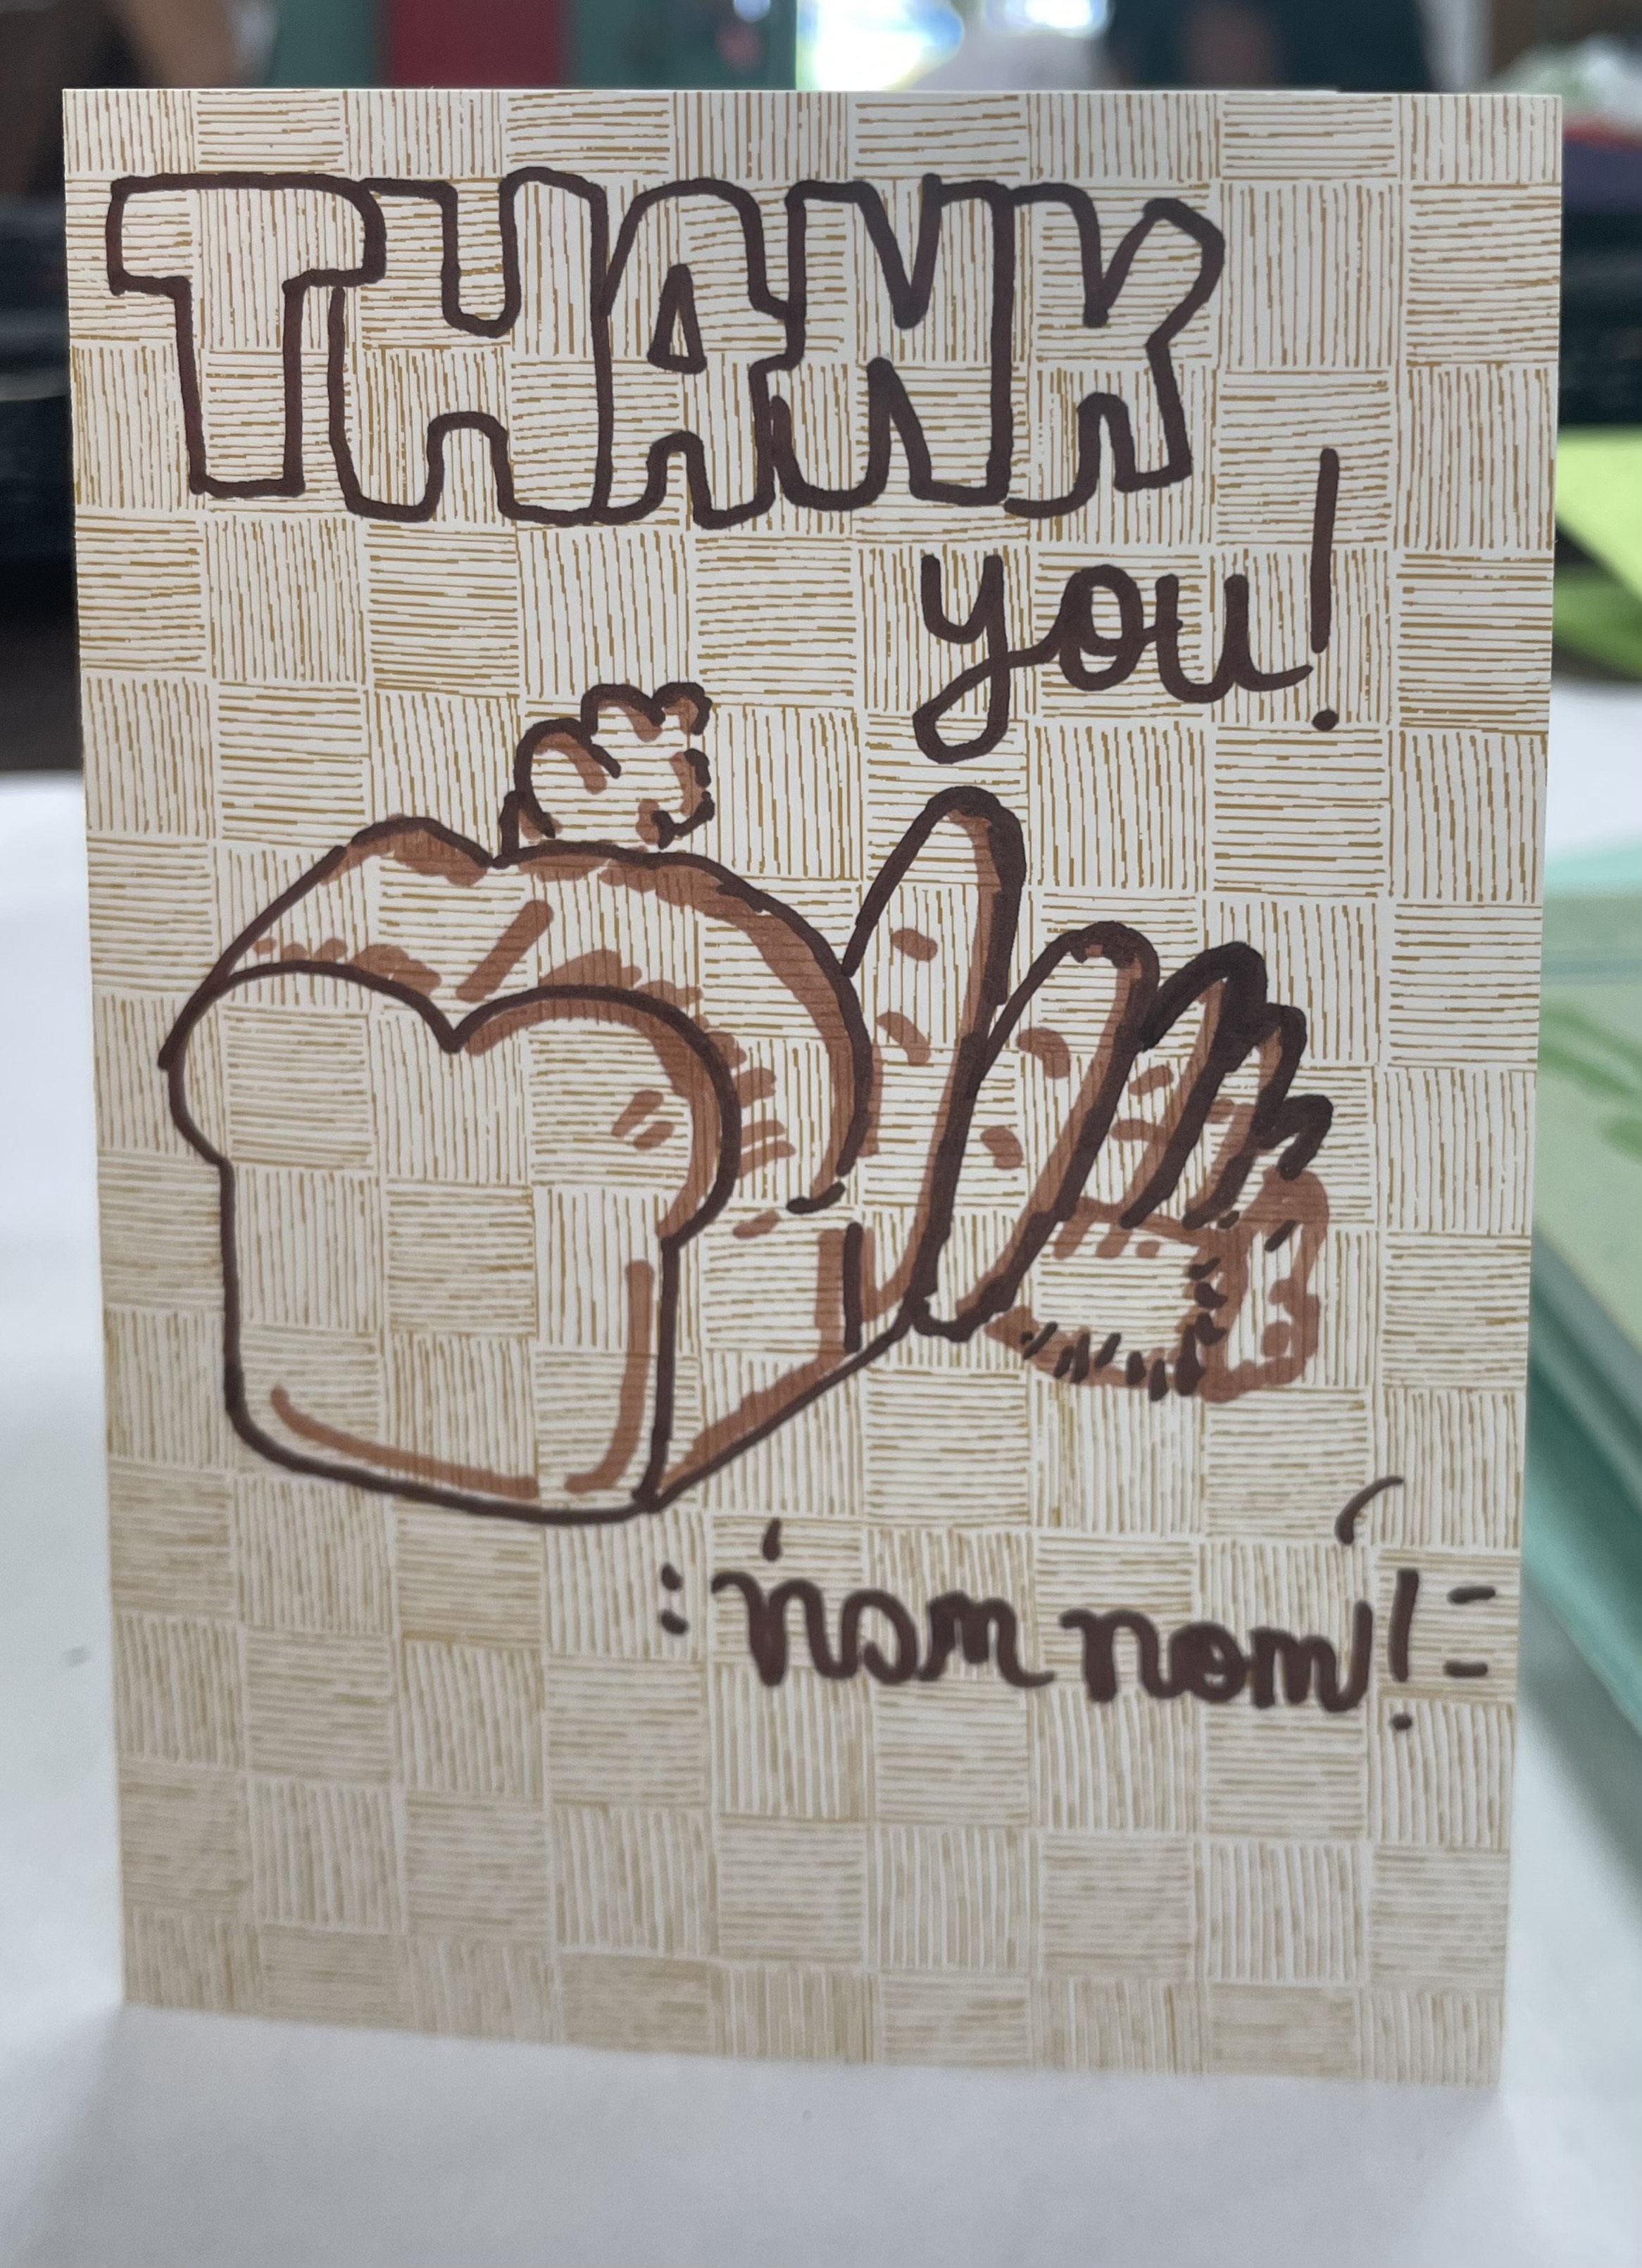 THANK
you!
nom nom!